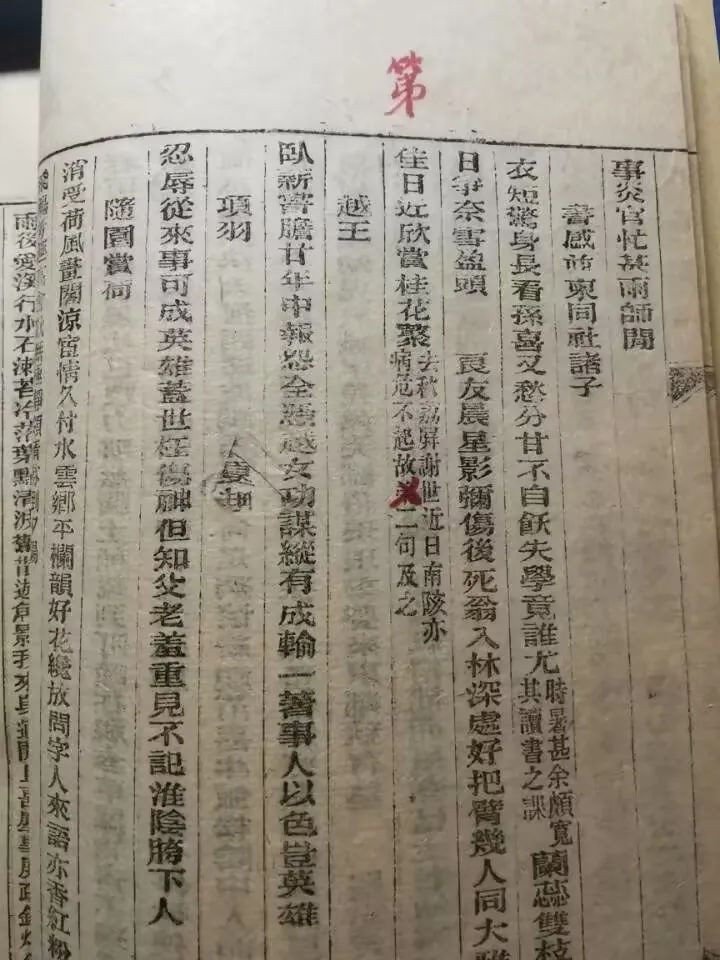 第
事炎官忙甚雨師閒
書感並柬同社諸子
衣短驚身長看孫喜又愁分甘不自飫失學竟誰尤時暑甚余頗寬其讀書之課蘭蕊雙枝
日爭奈雪盈頭 良友晨星影彌傷後死翁入林深處好把臂幾人同大
佳日近欣賞桂花聚去秋荔屏謝世近日南陔亦病危不起故二句及之
越王
臥薪嘗膽廿年中報怨全憑越女功謀縱有成輸一著事人以色豈英雄
項羽
忍辱從來事可成英雄蓋世枉傷神但知父老羞重見不記淮陰胯下人
隨園賞荷
消受荷風畫閣涼宦情久付水雲鄉平欄韻好花纔放問字人來語亦香紅粉
雨後愛溪行水石涷苔冷落葉點清波